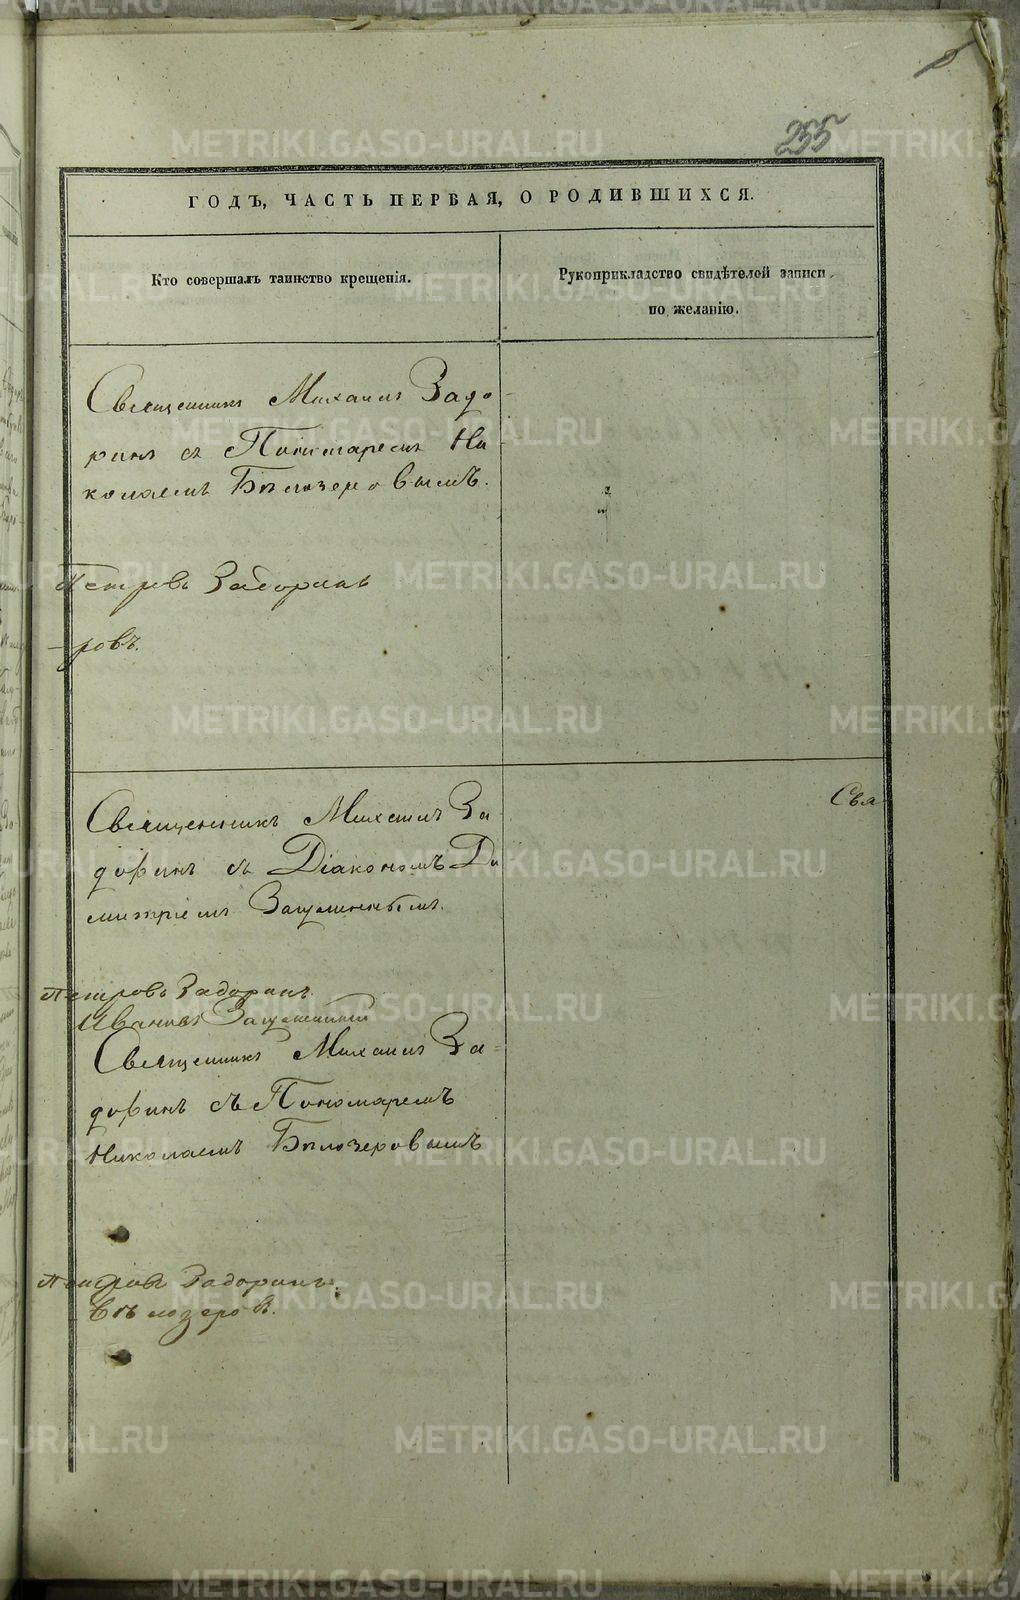 255
ГОДЪ, ЧАСТЬ ПЕРВАЯ, О РОДИВШИХСЯ.
Кто совершалъ таинство крещенія.
Рукоприкладство свидѣтелей записи
по желанію.
Священникъ Михаилъ Задо-
ринъ съ Пономаремъ Ни
колаемъ Бѣлозеровымъ.
Петровъ Задоринъ
-ровъ.
Свя-
Священникъ Михаилъ За-
доринъ съ Діакономъ Ди
митріемъ
Петровъ Задоринъ.
Ивановъ
Священникъ Михаилъ За-
доринъ съ Пономаремъ
Николаемъ Бѣлозеровымъ
Петровъ Задоринъ.
Бѣлозеровъ.
METRIKI.GASO-URAL.RU